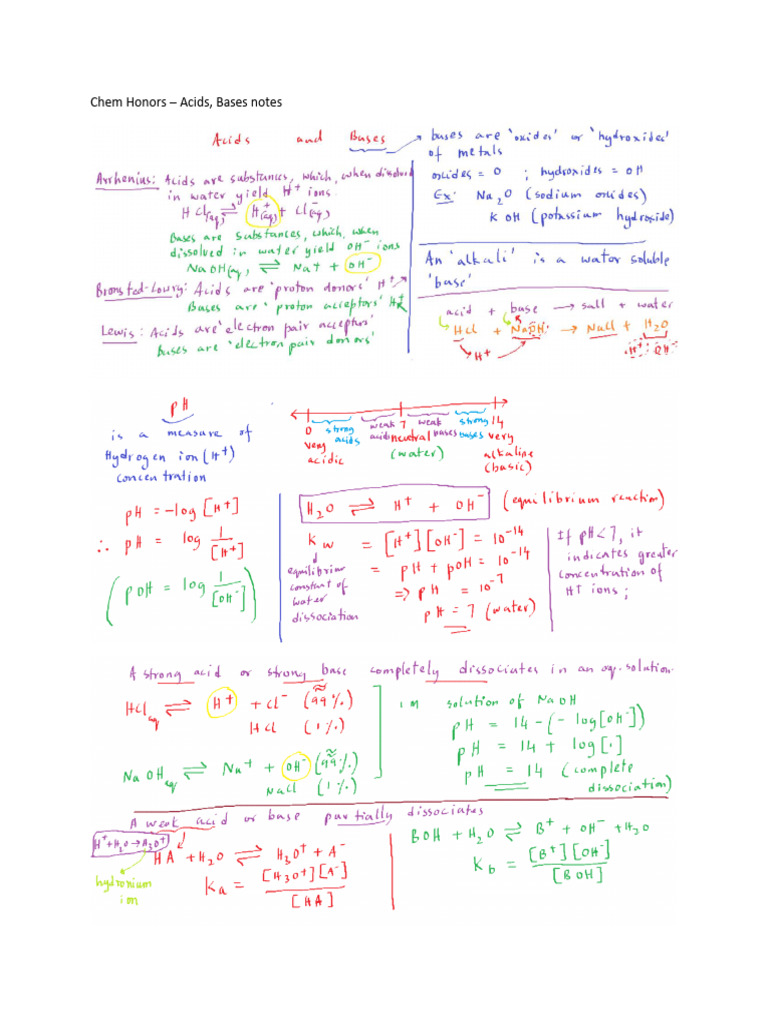 Chem Honors – Acids, Bases notes
Acids and Bases
Arrhenius: Acids are substances, which, when dissolved
in water yield H⁺ ions.
HCl(aq) ⇌ H⁺(aq) + Cl⁻(aq)
Bases are substances, which, when
dissolved in water yield OH⁻ ions
NaOH(aq) ⇌ Na+ + OH⁻
Bronsted-Lowry: Acids are 'proton donors' H⁺
Bases are 'proton acceptors' H⁺
Lewis: Acids are 'electron pair acceptors'
Bases are 'electron pair donors'
bases are 'oxides' or 'hydroxides'
of metals
oxides = O ; hydroxides = OH
Ex: Na₂O (sodium oxides)
KOH (potassium hydroxide)
An 'alkali' is a water soluble
'base'
acid + base → salt + water
HCl + NaOH → NaCl + H₂O
H⁺
H⁺ OH⁻
pH
is a measure of
Hydrogen ion (H⁺)
concentration
0 7 14
strong acids
weak acids
weak bases
strong bases
very acidic
neutral (water)
very alkaline (basic)
pH = -log [H⁺]
∴ pH = log 1/[H⁺]
(pOH = log 1/[OH⁻])
H₂O ⇌ H⁺ + OH⁻ (equilibrium reaction)
Kw = [H⁺][OH⁻] = 10⁻¹⁴
equilibrium
constant of
water
dissociation
= pH + pOH = 10⁻¹⁴
=> pH = 10⁻⁷
pH = 7 (water)
If pH<7, it
indicates greater
concentration of
H⁺ ions;
A strong acid or strong base completely dissociates in an aq. solution.
HCl aq ⇌ H⁺ + Cl⁻ (≈99%)
HCl (1%)
NaOH aq ⇌ Na⁺ + OH⁻ (≈99%)
NaCl (1%)
in solution of NaOH
pH = 14 - (- log[OH⁻])
pH = 14 + log[1]
pH = 14 (complete
dissociation)
A weak acid or base partially dissociates
H⁺+H₂O → H₃O⁺
hydronium
ion
HA + H₂O ⇌ H₃O⁺ + A⁻
Ka = [H₃O⁺][A⁻]/[HA]
BOH + H₂O ⇌ B⁺ + OH⁻ + H₂O
Kb = [B⁺][OH⁻]/[BOH]